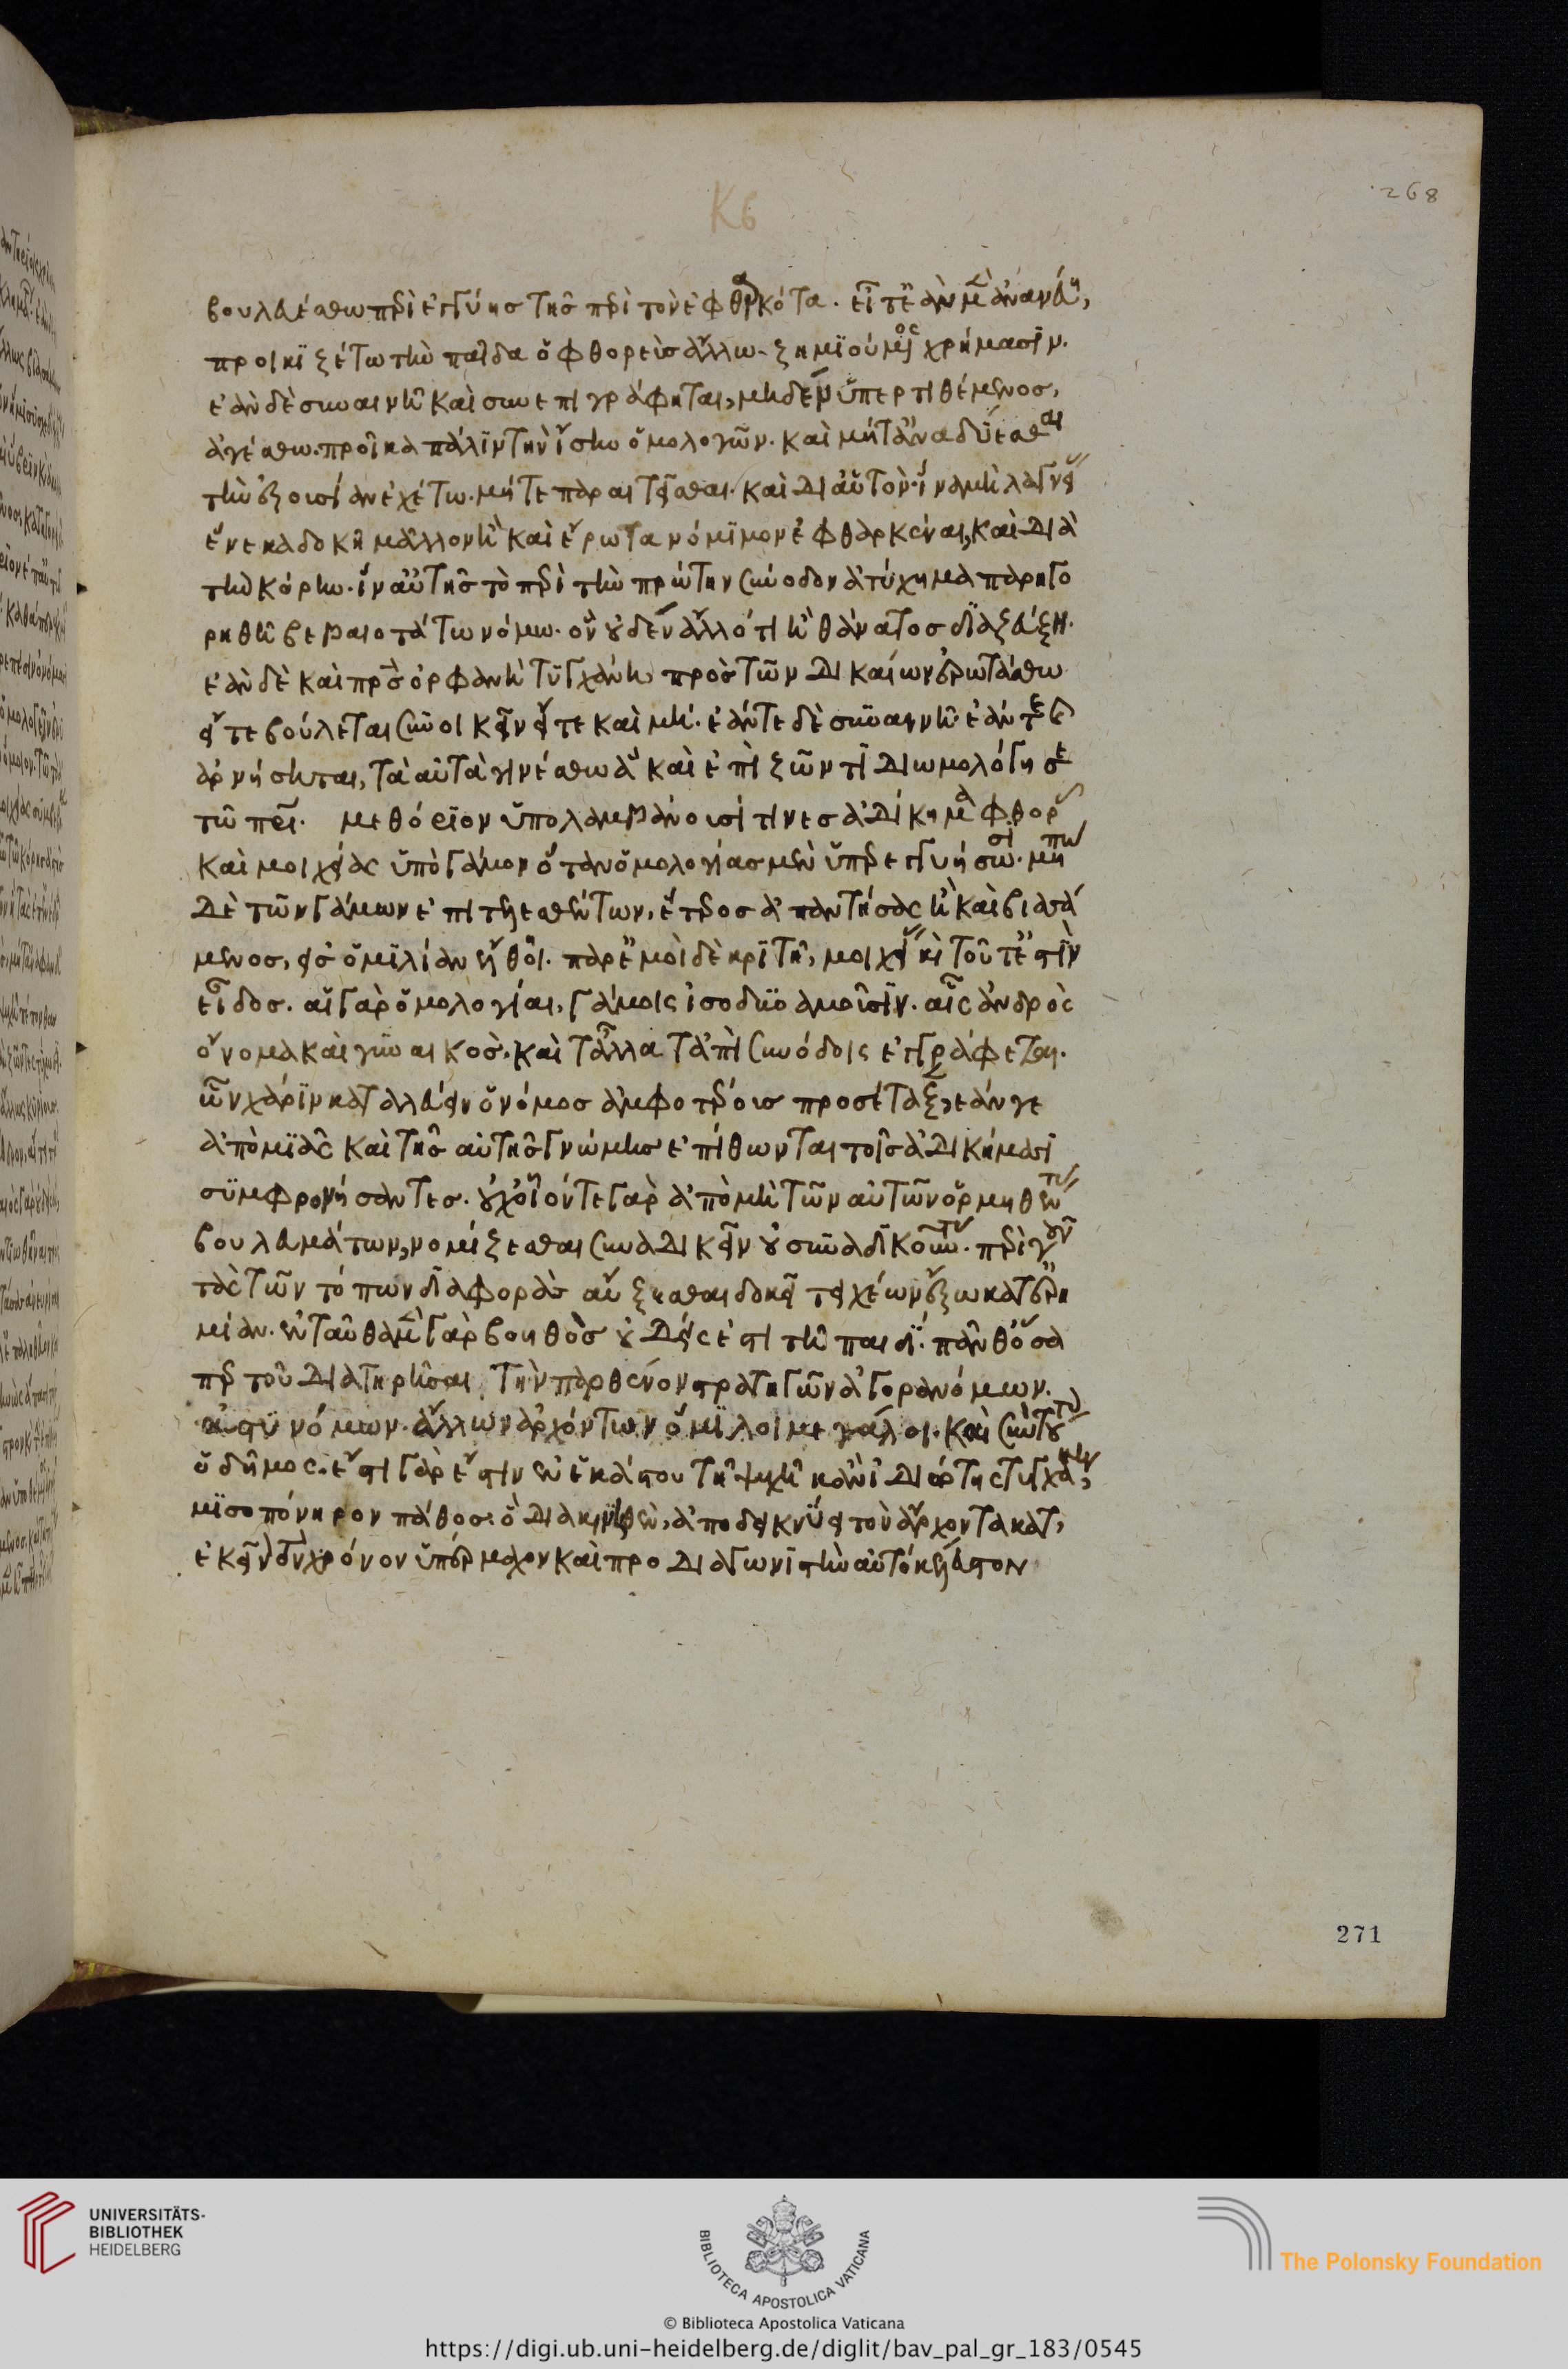 βουλευέσθω περὶ ἐγγύης τῆς περὶ τὸν ἐφθαρκότα. εἶτ' ἐὰν μὲν ἀνανεύη,
προικιζέτω τὴν παῖδα ὁ φθορεὺς ἄλλω. ζημιούμενος χρήμασιν.
ἐὰν δὲ συναινῆ καὶ συνεπιγράφηται, μηδὲν ὑπερτιθέμενος,
ἀγέσθω. προῖκα πάλιν τὴν ἴσην ὁμολογῶν. καὶ μήτ' ἀναδύεσθαι
τὴν ἐξουσίαν ἐχέτω. μήτε παραιτεῖσθαι. καὶ δι αὐτὸν· ἵνα μὴ λαγνείας
ἕνεκα δοκῆ μᾶλλον ἢ καὶ ἔρωτα νόμιμον ἐφθαρκέναι, καὶ διὰ
τὴν κόρην. ἵν αὐτῆς τὸ περὶ τὴν πρώτην σύνοδον ἀτύχημα παρηγο
ρηθῆ βεβαιοτάτω νόμω. ὃν οὐδὲν ἄλλό τι ἢ θάνατος διαζεύξη.
ἐὰν δὲ καὶ πατρὸς ὀρφανὴ τυγχάνη, πρὸς τῶν δικαίων ἐρωτάσθω
εἴτε βούλεται συνοικεῖν εἴτε καὶ μή. ἐάν τε δὲ συναινῆ. ἐάν τε
ἀρνήσηται, τὰ αὐτὰ γινέσθω ἃ καὶ ἐπὶ ζῶντι διωμολόγησε
τῶ πατρί. μεθόριον ὑπολαμβάνουσί τινες ἀδίκημα φθορᾶς
καὶ μοιχείας ὑπὸ γάμον ὅταν ὁμολογίας μὲν ὑπερεγγυήσωσι. μήπω
δὲ τῶν γάμων ἐπιτελεσθέντων, ἕτερος ἀπαντήσας ἢ καὶ βιασά
μενος, εἰς ὁμιλίαν ἔλθοι. παρ' ἐμοὶ δὲ κριτῆ, μοιχείας καὶ τοῦτ' ἐστὶν
εἶδος. αἱ γὰρ ὁμολογίαι, γάμοις ἰσοδυναμοῦσιν. αἷς ἀνδρὸς
ὄνομα καὶ γυναικὸς. καὶ τἆλλα τἀπὶ συνόδοις ἐγγράφεται.
ὧν χάριν καταλεύειν ὁ νόμος ἀμφοτέρους προσέταξεν, ἐάν γε
ἀπὸ μιᾶς καὶ τῆς αὐτῆς γνώμης ἐπίθωνται τοῖς ἀδικήμασι
συμφρονήσαντες. οὐχ οἷόν τε γὰρ ἀπὸ μὴ τῶν αὐτῶν ὁρμηθέντας
βουλευμάτων, νομίζεσθαι συναδικεῖν οὐ συναδικοῦντας. περὶ γοῦν
τὰς τῶν τόπων διαφορὰς αὔξησθαι δοκεῖ τειχέων ἔξω κατ' ἐρη
μίαν. ἐνταῦθα μὲν γὰρ βοηθὸς οὐδείς ἐστι τῆ παιδί. πανθόσα
περ τοῦ διατηρῆσαι τὴν παρθένον στρατηγῶν ἀγορανόμων.
ἀστυνόμων. ἄλλων ἀρχόντων ὅμιλοι μεγάλοι. καὶ σὺν τούτοις
ὁ δῆμος. ἔστι γὰρ ἔστιν ἐν ἑκάστου τῆ ψυχῆ κἂν ἰδιώτης τυγχάνη,
μισοπόνηρον πάθος. ὃ διακινηθὲν, ἀποδείκνυσι τὸν ἄρχοντα κατ'
ἐκεῖνον τὸν χρόνον ὑπέρμαχον καὶ προδιαγωνιστὴν αὐτοκέλευστον
κβ
268
271
UNIVERSITÄTS-
BIBLIOTHEK
HEIDELBERG
BIBLIOTECA APOSTOLICA VATICANA
The Polonsky Foundation
© Biblioteca Apostolica Vaticana
https://digi.ub.uni-heidelberg.de/diglit/bav_pal_gr_183/0545